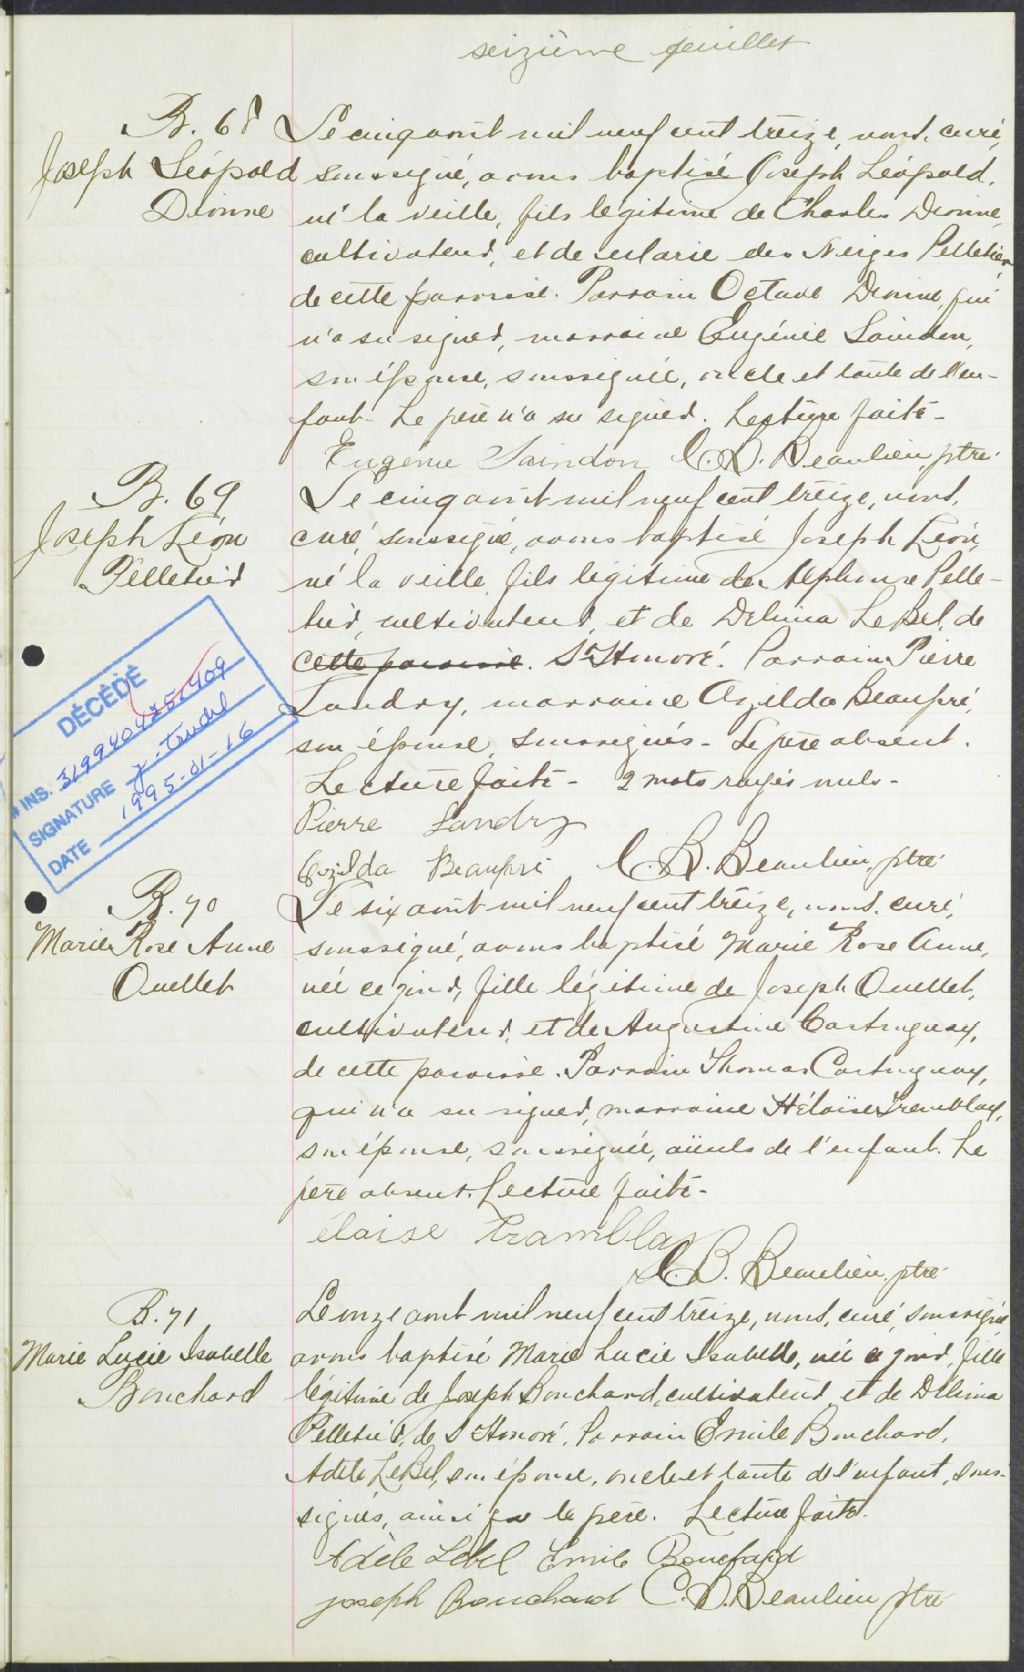 seizième feuillet
B. 68
Joseph Léopold
Dionne
Le cinq août mil neuf cent treize, nous, curé,
soussigné, avons baptisé Joseph Léopold,
né la veille, fils légitime de Charles Dionne,
cultivateur, et de Marie des Neiges Pelletier
de cette paroisse. Parrain Octave Dionne, qui
n'a su signer, marraine Eugénie Saindon,
son épouse, soussignée, oncle et tante de l'en-
fant. Le père n'a su signer. Lecture faite-
Eugenie Saindon C. B. Beaulieu, ptre
B. 69
Joseph Léon
Pelletier
Le cinq août mil neuf cent treize, nous,
curé, soussigné, avons baptisé Joseph Léon,
né la veille, fils légitime de Alphonse Pelle-
tier, cultivateur, et de Delima LeBel, de
cette paroisse. St Honoré. Parrain Pierre
Landry, marraine Azilda Beaupré,
son épouse, soussignés - Le père absent.
Lecture faite - 2 mots rayés nuls -
Pierre Landry
Azilda Beaupré C. B. Beaulieu, ptre
DÉCÉDÉ
INS.
SIGNATURE
DATE 1995-01-16
B. 70
Marie Rose Anne
Ouellet
Le six août mil neuf cent treize, nous, curé,
soussigné, avons baptisé Marie Rose Anne,
née ce jour, fille légitime de Joseph Ouellet,
cultivateur, et de Augustine Castonguay,
de cette paroisse. Parrain Thomas Castonguay,
qui n'a su signer, marraine Héloïse Tremblay,
son épouse, soussignée, aïeuls de l'enfant. Le
père absent. Lecture faite -
éloise Tramblay
C. B. Beaulieu, ptre
B. 71
Marie Lucie Isabelle
Bouchard
Le onze août mil neuf cent treize, nous, curé, soussigné
avons baptisé Marie Lucie Isabelle, née ce jour, fille
légitime de Joseph Bouchard, cultivateur, et de Délima
Pelletier, de St Honoré. Parrain Emile Bouchard,
Adèle LeBel, son épouse, oncle et tante de l'enfant, sous-
signés, ainsi que le père. Lecture faite.
Adèle Lebel Emile Bouchard
joseph Bouchard C. B. Beaulieu ptre